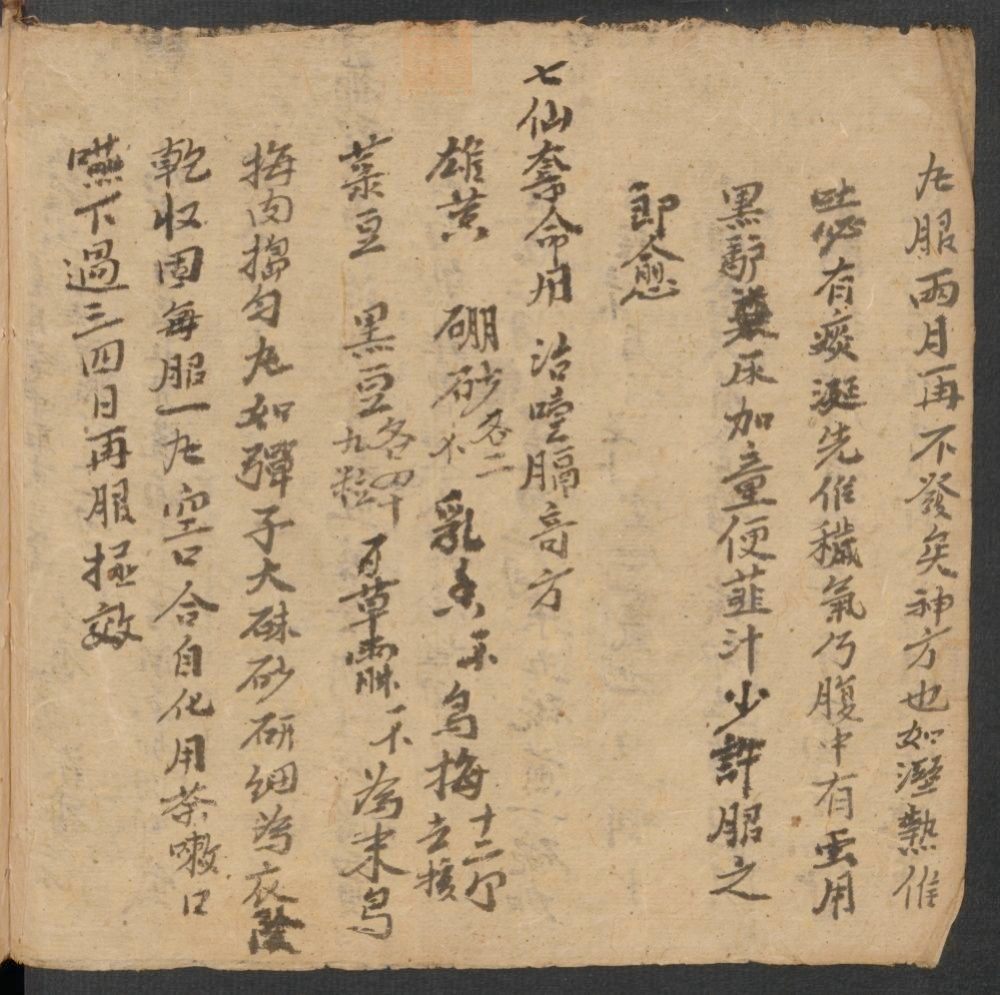 丸服兩月再不發矣神方也如溼熱作
吐必有痰涎先作穢氣乃腹中有虫用
黑驢尿加童便韮汁少許服之
即愈
七仙奪命用治噎膈奇方
雄黃 硼砂各二 乳香 烏梅十二个去核
菉豆 黑豆各四十九粒 百草霜 為末烏
梅肉搗勻丸如彈子大硃砂研細為衣陰
乾收固每服一丸空口含自化用茶嗽口
嚥下過三四日再服極效